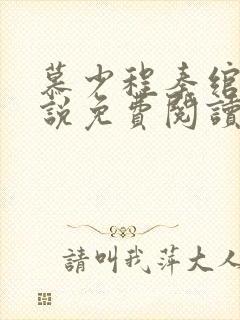 慕少程奏綰
說免費閱讀
請叫我萍大人